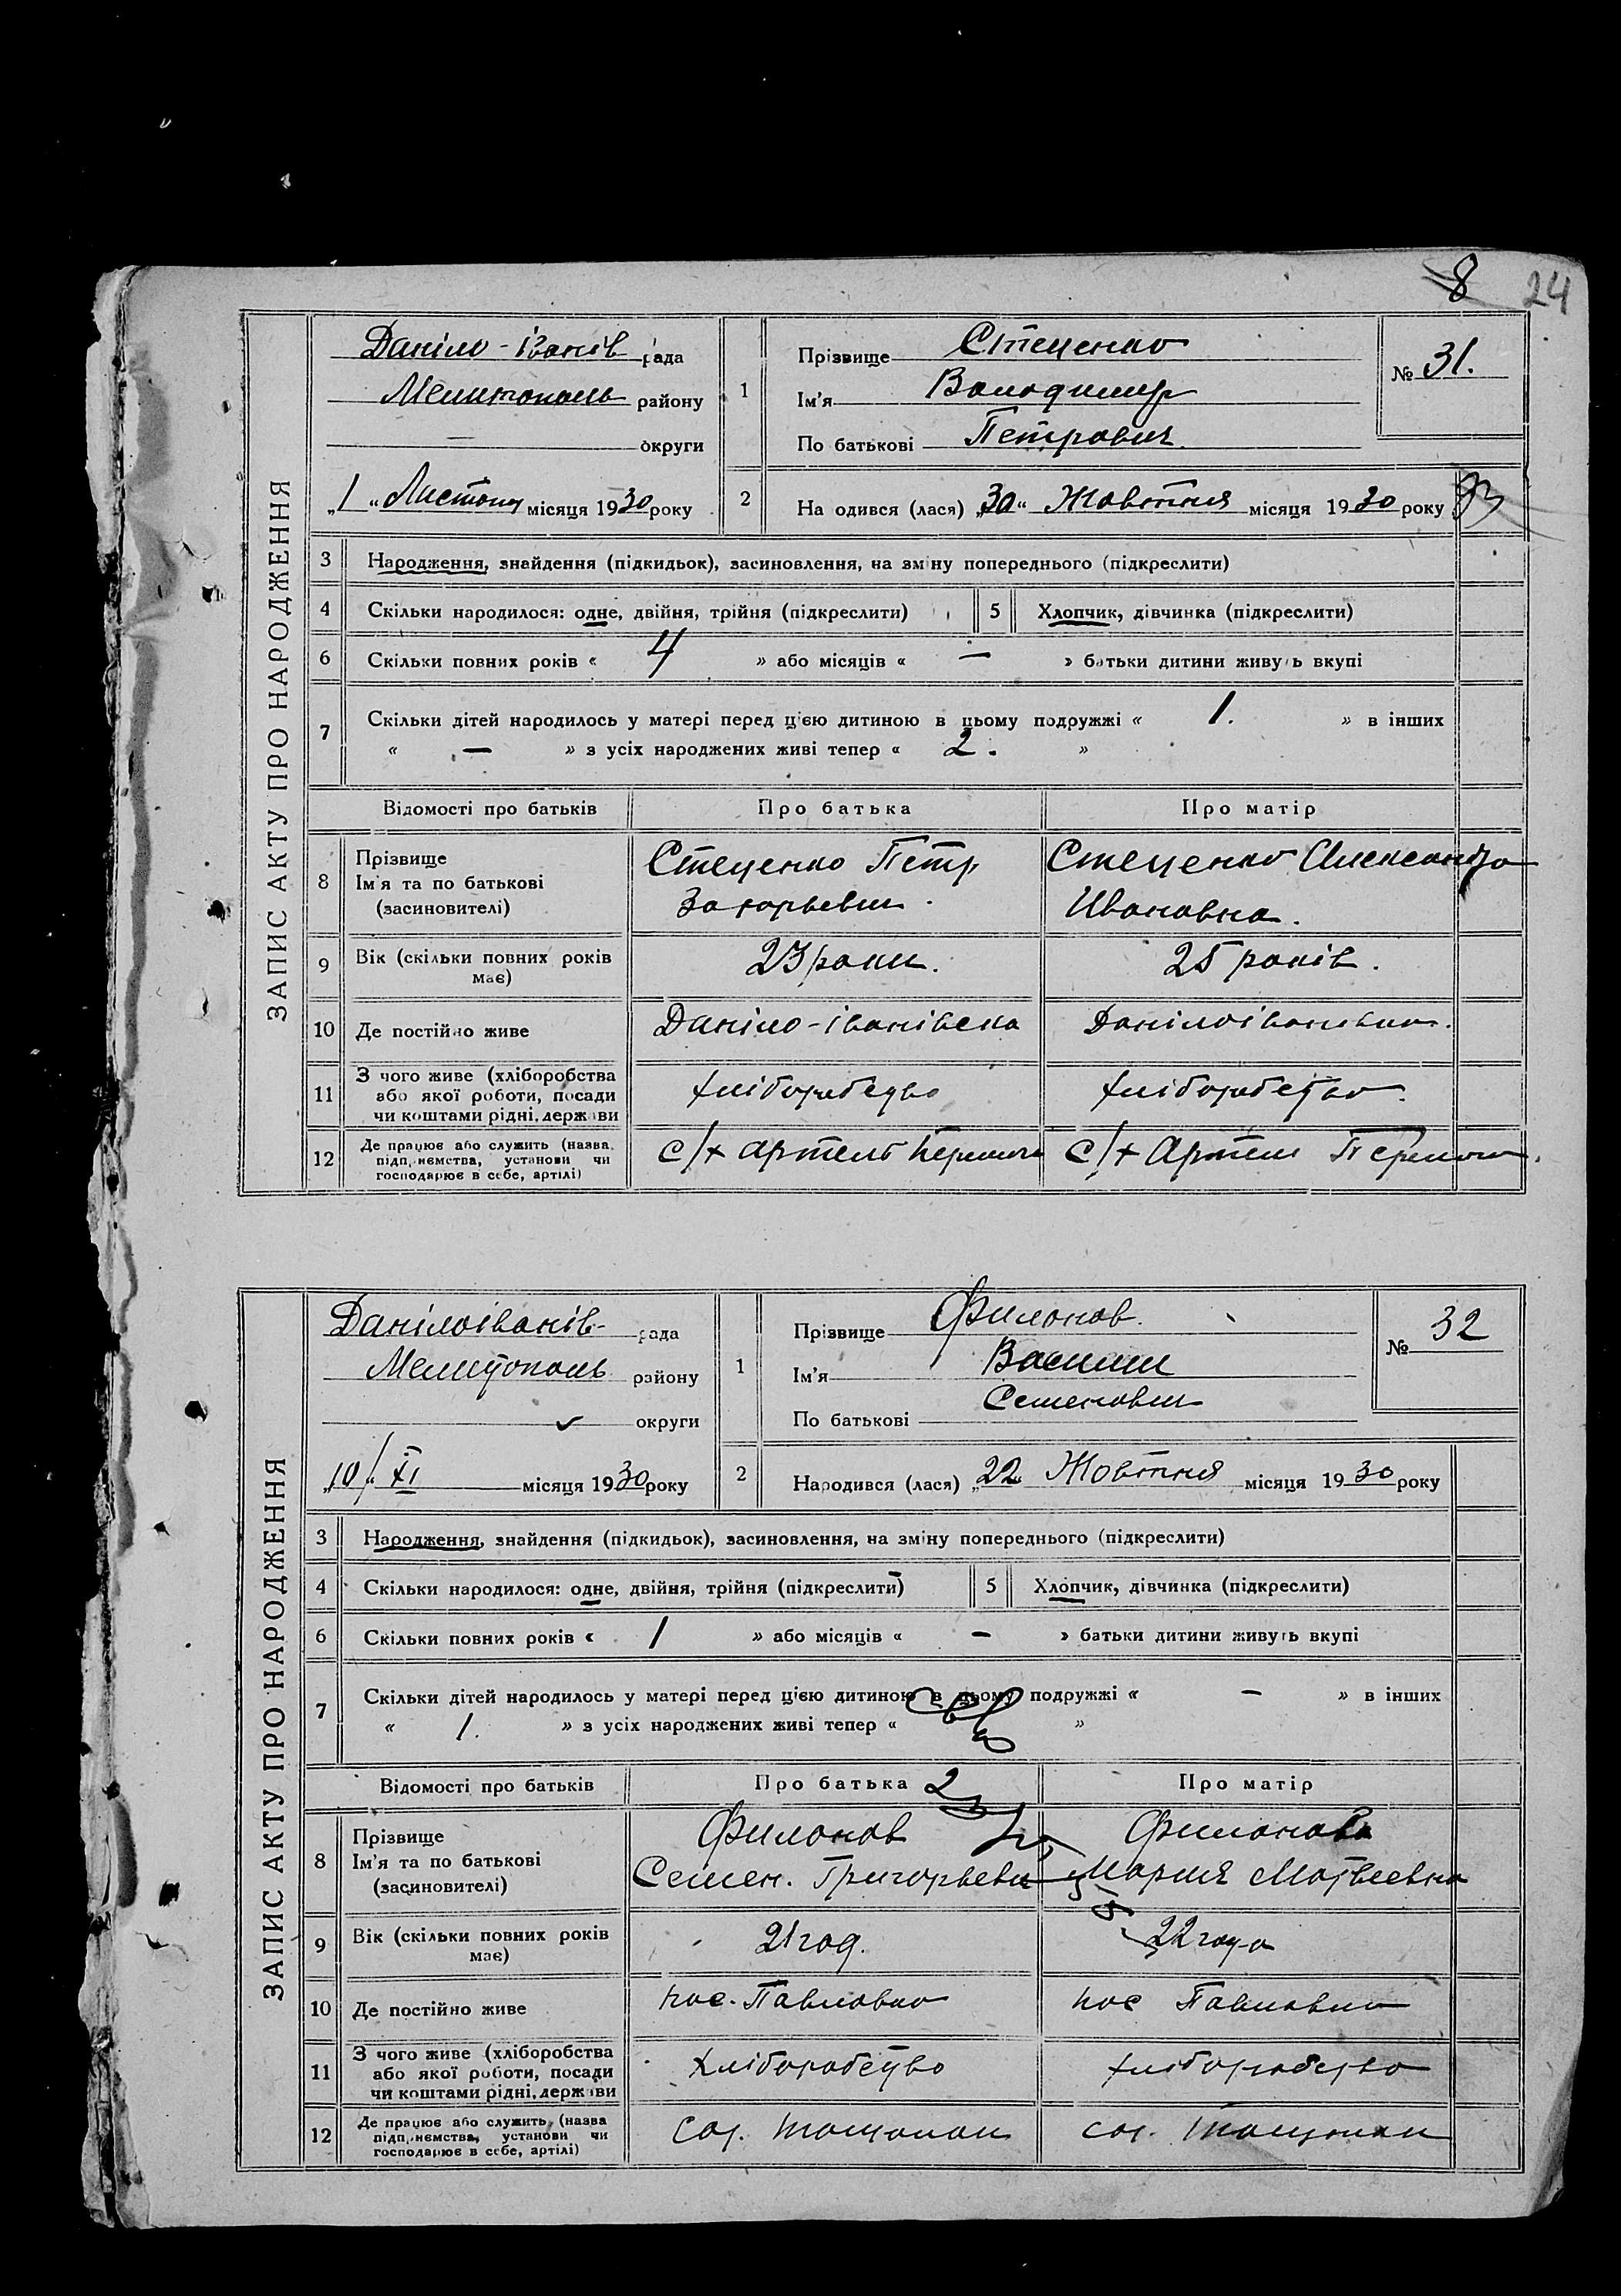 8 24
ЗАПИС АКТУ ПРО НАРОДЖЕННЯ
Даніло-іванів рада
Мелитополь району
— округи
„1“ Листопад місяця 1930 року
1
Прізвище Стеценко
Ім'я Володимир
По батькові Петрович
№ 31.
2 На одився (лася) „30“ Жовтня місяця 1930 року
93
3 Народження, знайдення (підкидьок), засиновлення, на зміну попереднього (підкреслити)
4 Скільки народилося: одне, двійня, трійня (підкреслити) 5 Хлопчик, дівчинка (підкреслити)
6 Скільки повних років « 4 » або місяців « — » батьки дитини живуть вкупі
7 Скільки дітей народилось у матері перед цією дитиною в цьому подружжі « 1. » в інших
« — » з усіх народжених живі тепер « 2. »
Відомості про батьків Про батька Про матір
8 Прізвище
Ім'я та по батькові
(засиновителі)
Стеценко Петр
Захорьевич.
Стеценко Александра
Ивановна.
9 Вік (скільки повних років
має)
23 роки. 25 років.
10 Де постійно живе Даніло-іванівска Данілоіванивка.
11 З чого живе (хліборобства
або якої роботи, посади
чи коштами рідні, держави
хліборобство хліборобство.
12 Де працює або служить (назва,
підприємства, установи чи
господарює в себе, артілі)
с/х артель с/х Артель
ЗАПИС АКТУ ПРО НАРОДЖЕННЯ
Данілоіванів- рада
Мелитополь району
округи
„10/“ XI місяця 1930 року
1
Прізвище Филонов.
Ім'я Василий
По батькові Семенович
№ 32
2 Народився (лася) „22 Жовтня місяця 1930 року
3 Народження, знайдення (підкидьок), засиновлення, на зміну попереднього (підкреслити)
4 Скільки народилося: одне, двійня, трійня (підкреслити) 5 Хлопчик, дівчинка (підкреслити)
6 Скільки повних років « 1 » або місяців « — » батьки дитини живуть вкупі
7 Скільки дітей народилось у матері перед цією дитиною в цьому подружжі « — » в інших
« 1. » з усіх народжених живі тепер « »
Відомості про батьків Про батька 2 Про матір
8 Прізвище
Ім'я та по батькові
(засиновителі)
Филонов
Семен. Григорьевич
Филонова
Мария Матвеевна
9 Вік (скільки повних років
має)
21 год. 22 года
10 Де постійно живе пос. Павловка пос Павловка
11 З чого живе (хліборобства
або якої роботи, посади
чи коштами рідні, держави
хліборобство хліборобство
12 Де працює або служить (назва
підприємства, установи чи
господарює в себе, артілі)